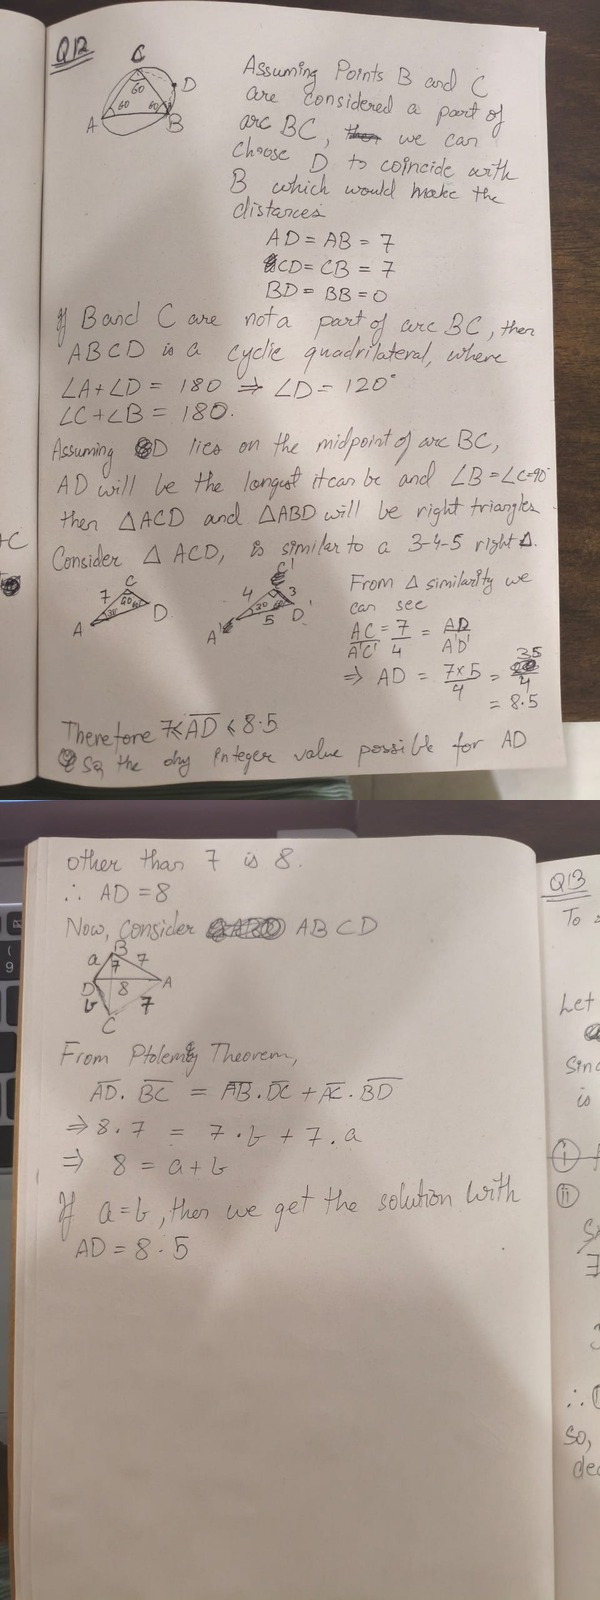 Q12
C
60
D
60
60
A
B
Assuming Points B and C
are considered a part of
arc BC, we can
choose D to coincide with
B which would make the
distances
AD = AB = 7
CD = CB = 7
BD = BB = 0
If B and C are not a part of arc BC, then
ABCD is a cyclic quadrilateral, where
∠A + ∠D = 180 ⇒ ∠D = 120°
∠C + ∠B = 180.
Assuming D lies on the midpoint of arc BC,
AD will be the longest it can be and ∠B = ∠C = 90°
then △ACD and △ABD will be right triangles
Consider △ ACD, is similar to a 3-4-5 right △.
+C
C
7
60
30
A
D
C'
4
3
30
60
A'
5
D'
From △ similarity we
can see
AC/A'C' = 7/4 = AD/A'D'
⇒ AD = 7×5/4 = 35/4
= 8.5
Therefore 7 ≤ AD ≤ 8.5
So, the only integer value possible for AD
other than 7 is 8.
∴ AD = 8
Now, Consider ABCD
B
a
7
7
D
8
A
b
7
C
From Ptolemy Theorem,
AD. BC = AB. DC + AC. BD
⇒ 8.7 = 7.b + 7.a
⇒ 8 = a + b
If a = b, then we get the solution with
AD = 8.5
Q13
To
Let
Sinc
is
i
ii
7
3
∴
So,
dec